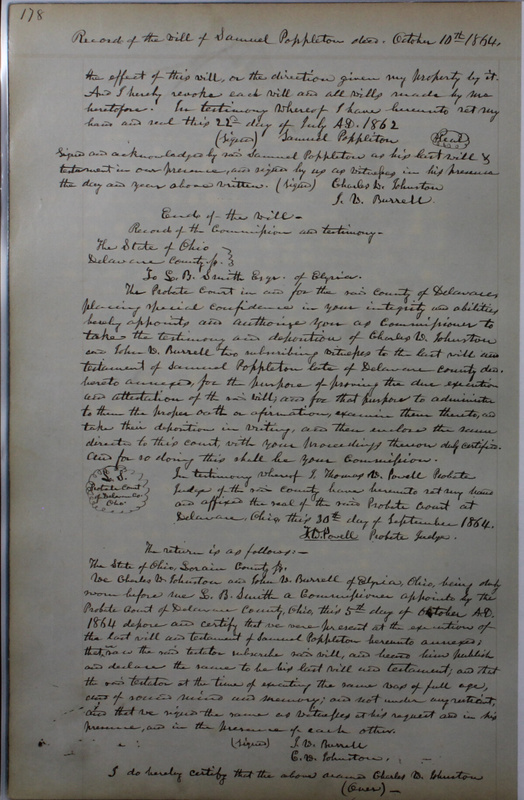 178
Record of the will of Samuel Poppleton decd. October 10th 1864.
the effect of this will, or the direction given my property by it.
And I hereby revoke each will and all wills made by me
heretofore. In testimony whereof I have hereunto set my
hand and seal this 22nd day of July A.D. 1862
(signed) Samuel Poppleton (Seal)
Signed and acknowledged by said Samuel Poppleton as his last will &
testament in our presence, and signed by us as witnesses in his presence
the day and year above written. (signed) Charles D. Johnston
J. D. Burrell.
End of the will—
Record of the Commission and testimony—
The State of Ohio
Delaware County ss.
To L. B. Smith Esqr. of Elyria.
The Probate Court in and for the said County of Delaware
placing special confidence in your integrity and abilities
hereby appoints and authorize you as Commissioner to
take the testimony and deposition of Charles D. Johnston
and John D. Burrell two subscribing witnesses to the last will and
testament of Samuel Poppleton late of Delaware County decd.
hereto annexed, for the purpose of proving the due execution
and attestation of the said will, and for that purpose to administer
to them the proper oath or afirmation, examine them thereto, and
take their deposition in writing, and then enclose the same
directed to this court, with your proceedings thereon duly certified.
And for so doing this shall be your Commission.
L.S. Probate Court of Delaware Co. Ohio
In testimony whereof I Thomas W. Powell Probate
Judge of the said County have hereunto set my hand
and affixed the seal of the said Probate Court at
Delaware, Ohio, this 30th day of September 1864.
T. W. Powell Probate Judge.
The return is as follows:—
The State of Ohio, Lorain County ss.
We Charles D. Johnston and John D. Burrell of Elyria, Ohio, being duly
sworn before me L. B. Smith a Commissioner appointed by the
Probate Court of Delaware County, Ohio, this 5th day of October A.D.
1864 depose and certify that we were present at the execution of
the last will and testament of Samuel Poppleton hereunto annexed;
that we saw the said testator subscribe said will, and heard him publish
and declare the same to be his last will and testament; and that
the said testator at the time of executing the same was of full age,
and of sound mind and memory; and not under any restraint,
and that we signed the same as witnesses at his request and in his
presence, and in the presence of each other.
(signed) J. D. Burrell
C. D. Johnston.
I do hereby certify that the above named Charles D. Johnston
(Over)—